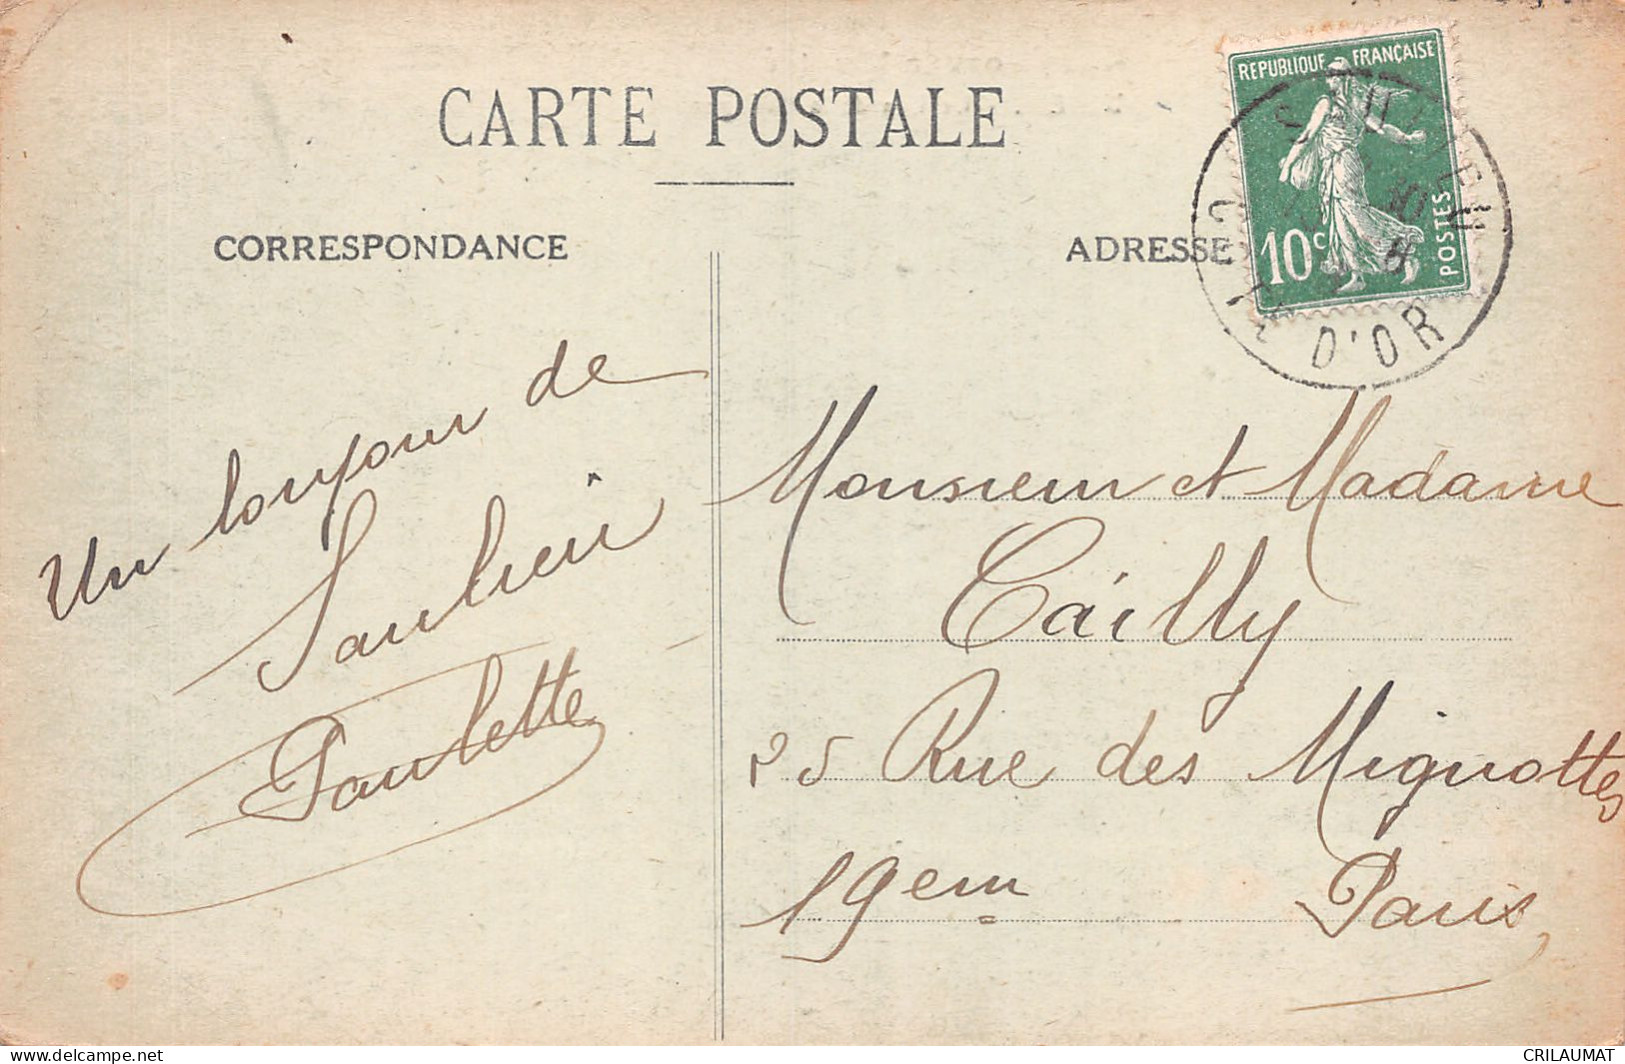 CARTE POSTALE
CORRESPONDANCE
ADRESSE
REPUBLIQUE FRANÇAISE
10c
POSTES
SAULIEU
D'OR
Un bonjour de
Saulieu
Paulette
Monsieur et Madame
Cailly
25 Rue des Mignottes
19em Paris
CRILAUMAT